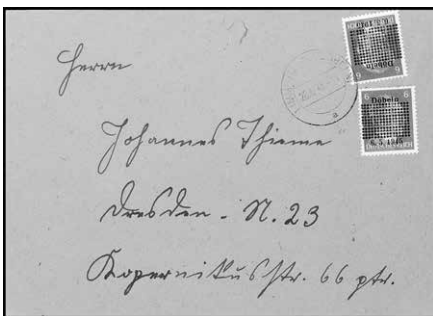 Herrn
Johannes Thieme
Dresden - N. 23
Kopernikusstr. 66 ptr.
Döbeln
6
6
6. 5. 1945
Döbeln
6
6